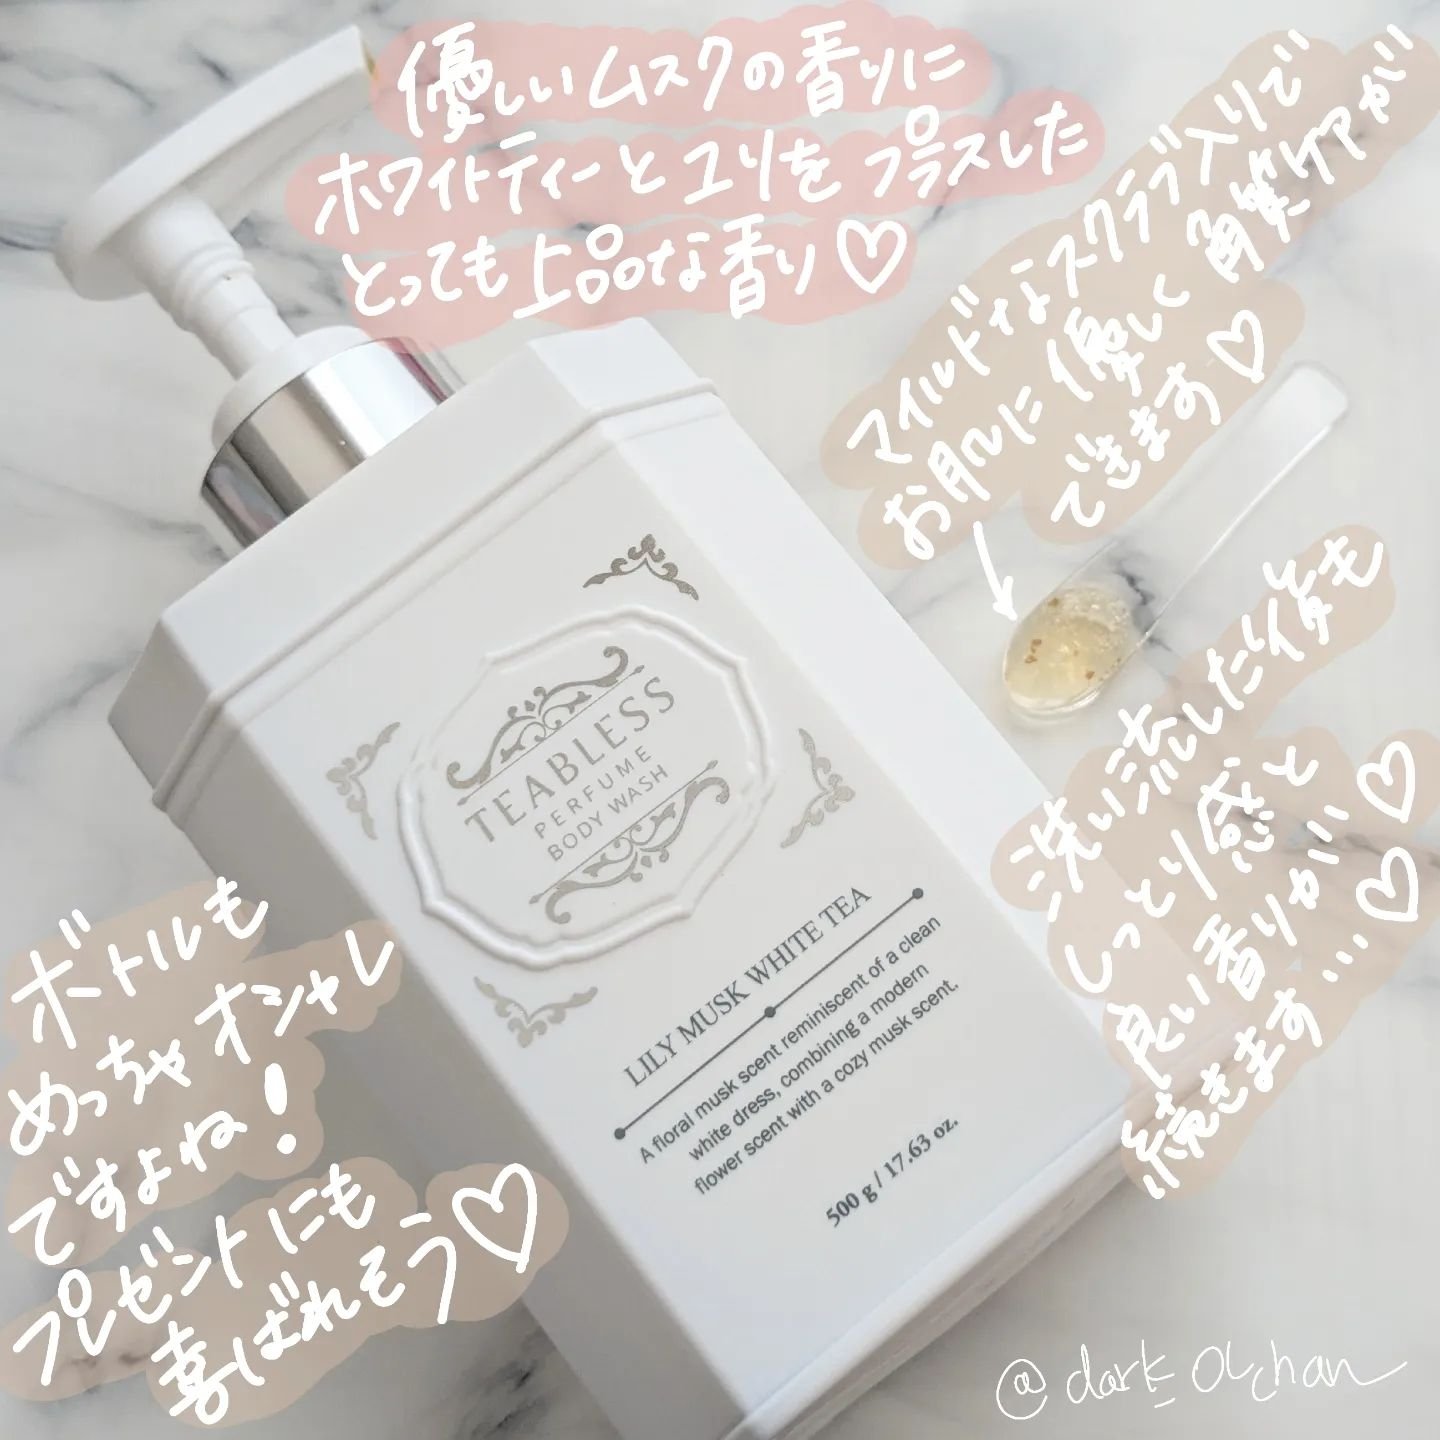 優しいムスクの香りに
ホワイトティーとユリをプラスした
とっても上品な香り♡
マイルドなスクラブ入りで
お肌に優しく角質ケアが
できます♡
洗い流した後も
しっとり感と
良い香りが♡
続きます…♡
TEABLESS
PERFUME
BODY WASH
LILY MUSK WHITE TEA
A floral musk scent reminiscent of a clean
white dress, combining a modern
flower scent with a cozy musk scent.
500 g / 17.63 oz.
ボトルも
めっちゃオシャレ
ですよね!
プレゼントにも
喜ばれそう♡
@dark_olchan